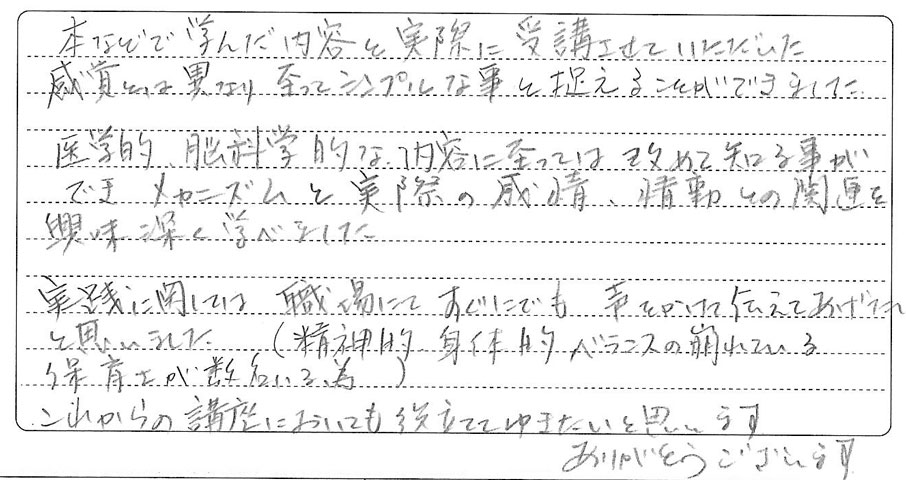 本などで学んだ内容と実際に受講させていただいた
感覚とは異なり至ってシンプルな事と捉えることができました
医学的、脳科学的な内容に至っては改めて知る事が
できメカニズムと実際の感情、情動との関連を
興味深く学べました
実践に関しては職場にてすぐにでも声をかけて伝えてあげたい
と思いました（精神的身体的バランスの崩れている
保育士が数名いる為）
これからの講座においても役立ててゆきたいと思います
ありがとうございます